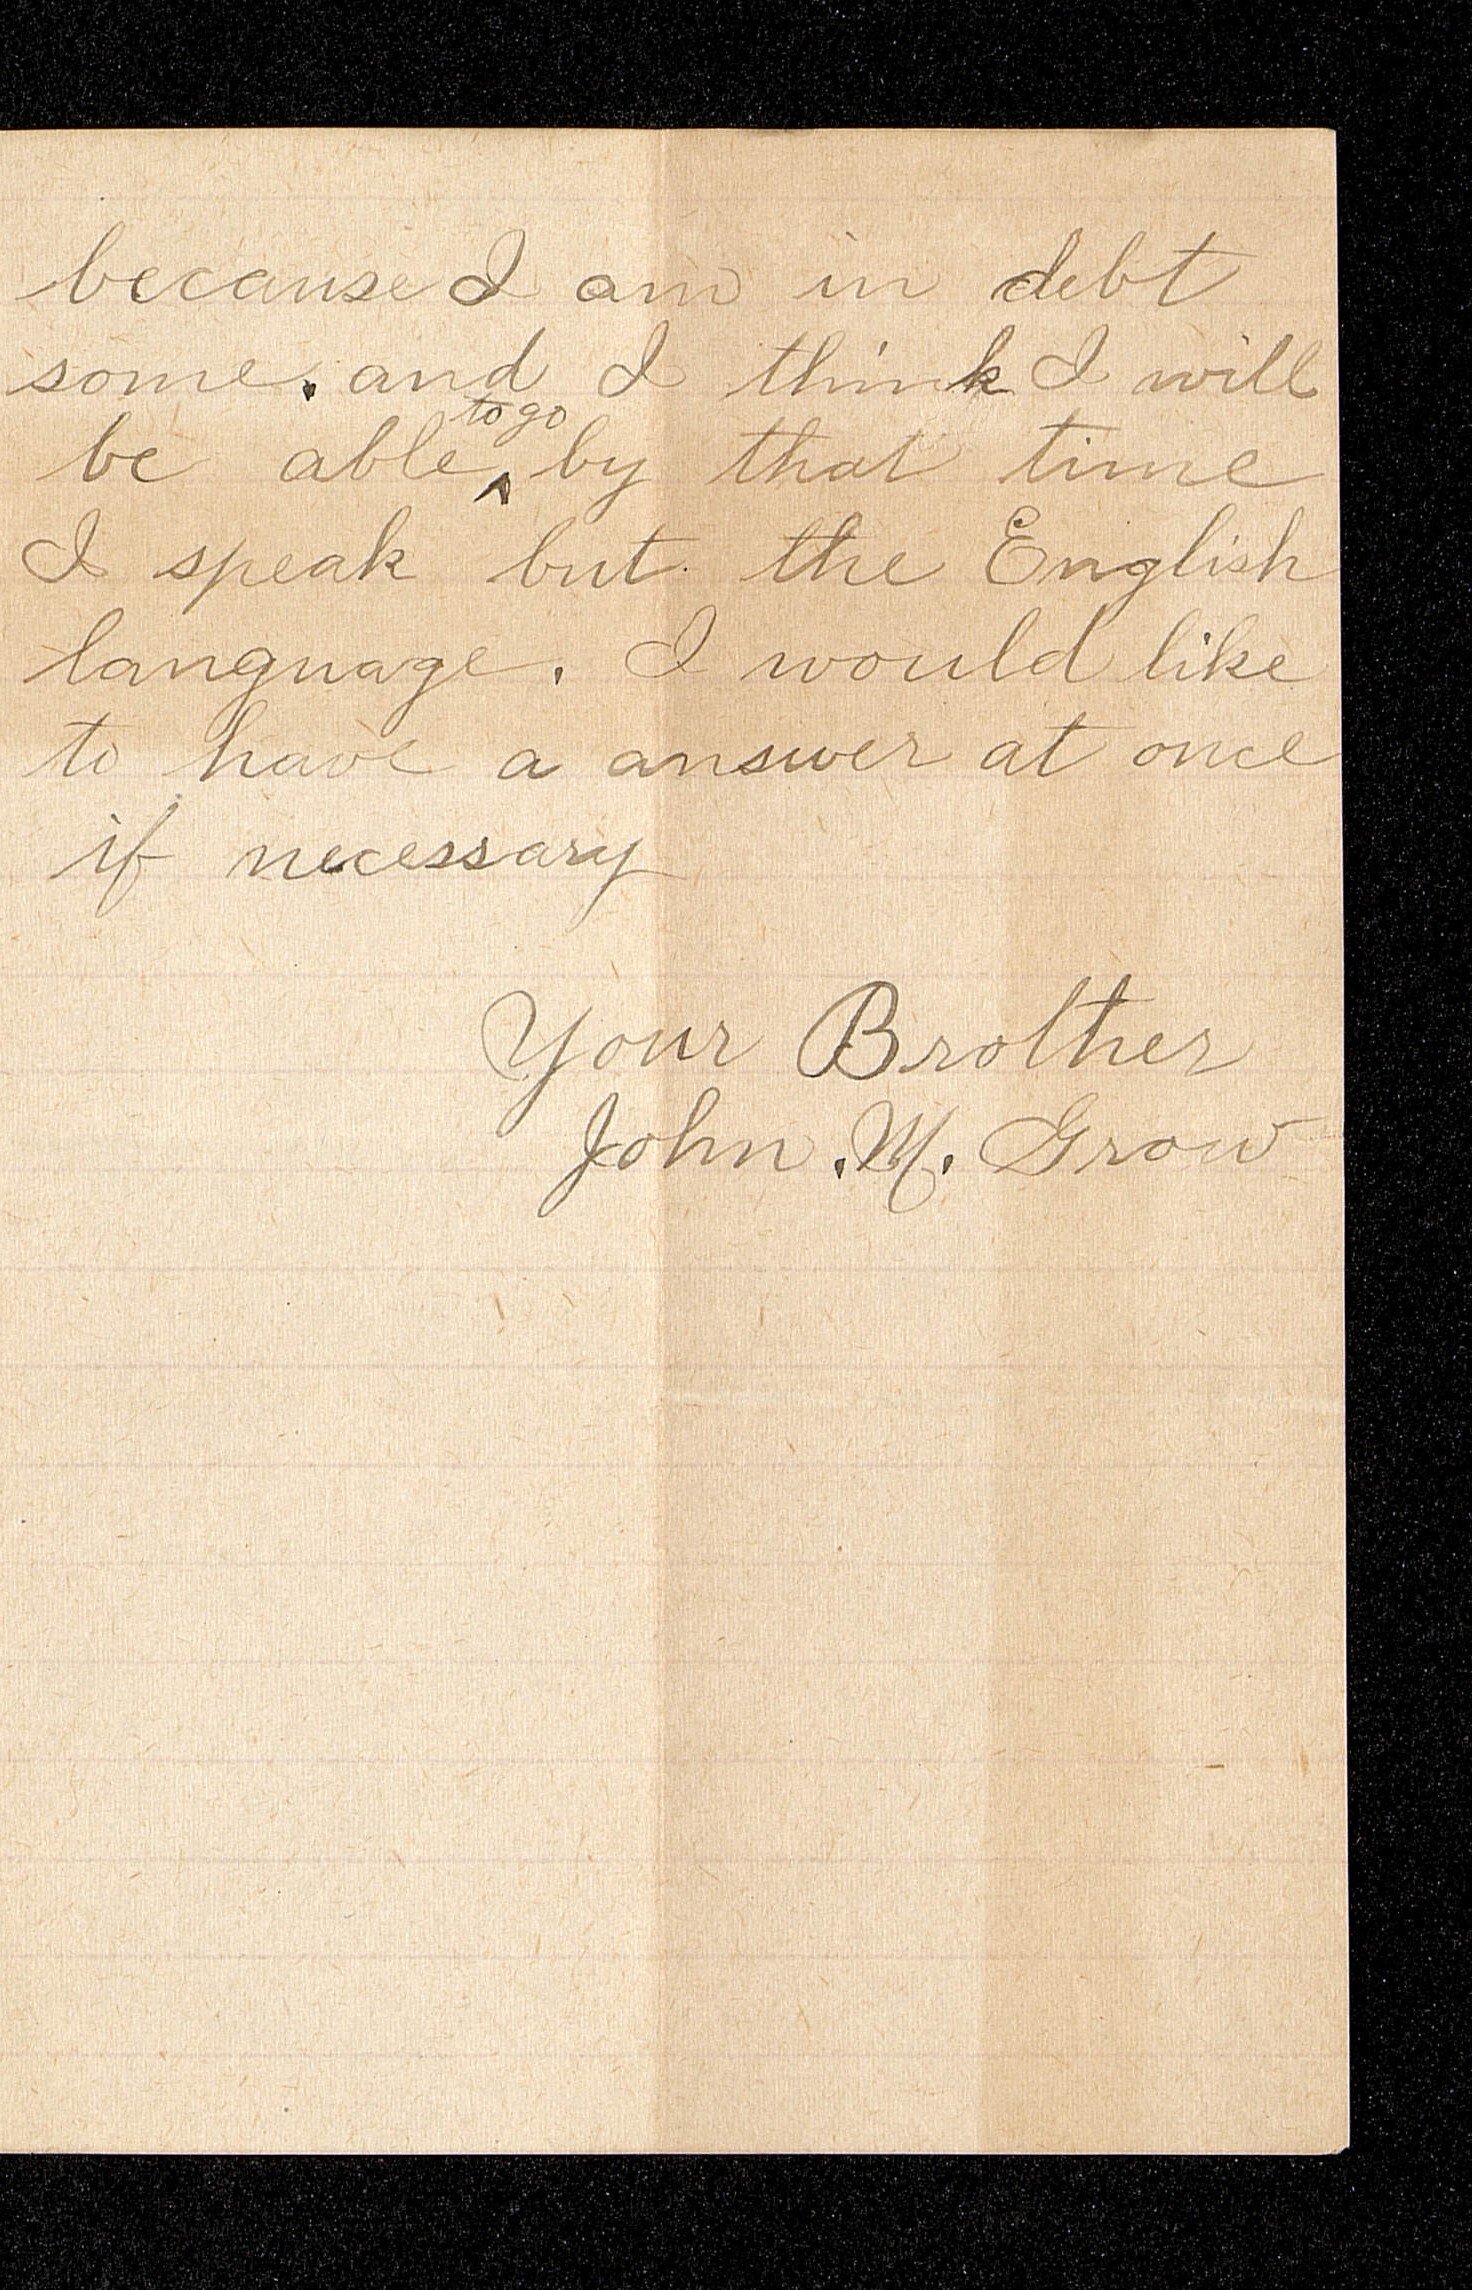 because I am in debt
some. and I think I will
to go
be able ^ by that time
I speak but the English
language. I would like
to have a answer at once
if necessary
Your Brother
John. M. Grow